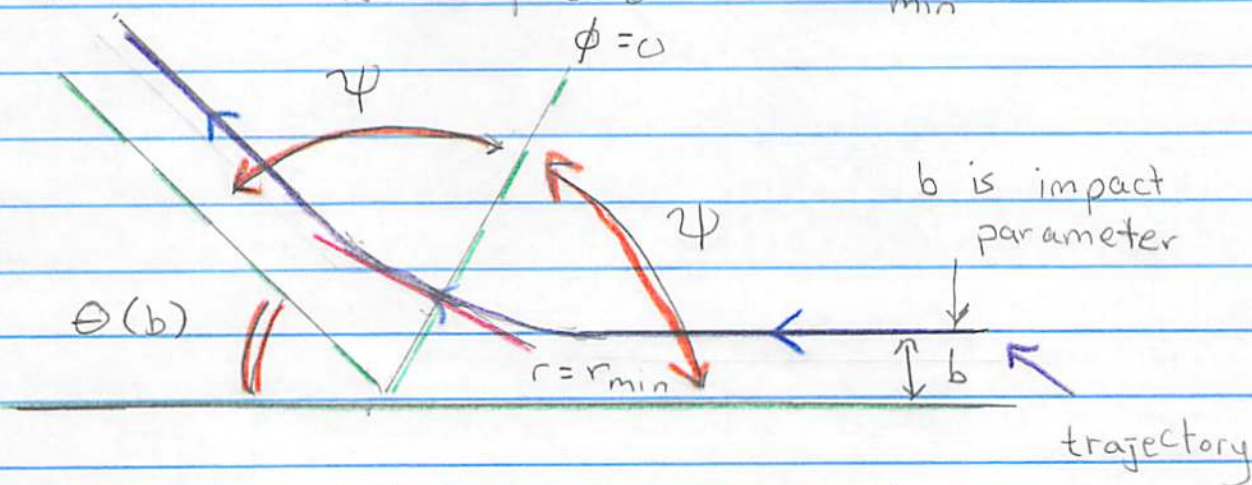 min
ϕ = 0
ψ
b is impact
parameter
ψ
θ(b)
r = r min
b
trajectory